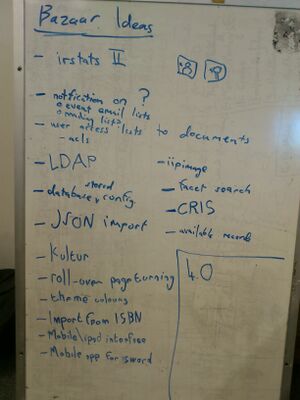 Bazaar Ideas
- irstats II
- notification on ?
o event email lists
o mailing lists
- user access lists to documents
- acls
- LDAP
- iipimage
- stored database config.
- facet search
- JSON import
- CRIS
- available records
- Kultur
4.0
- roll-over page turning
- theme colours
- Import from ISBN
- Mobile/ipod interface
- Mobile app for sword